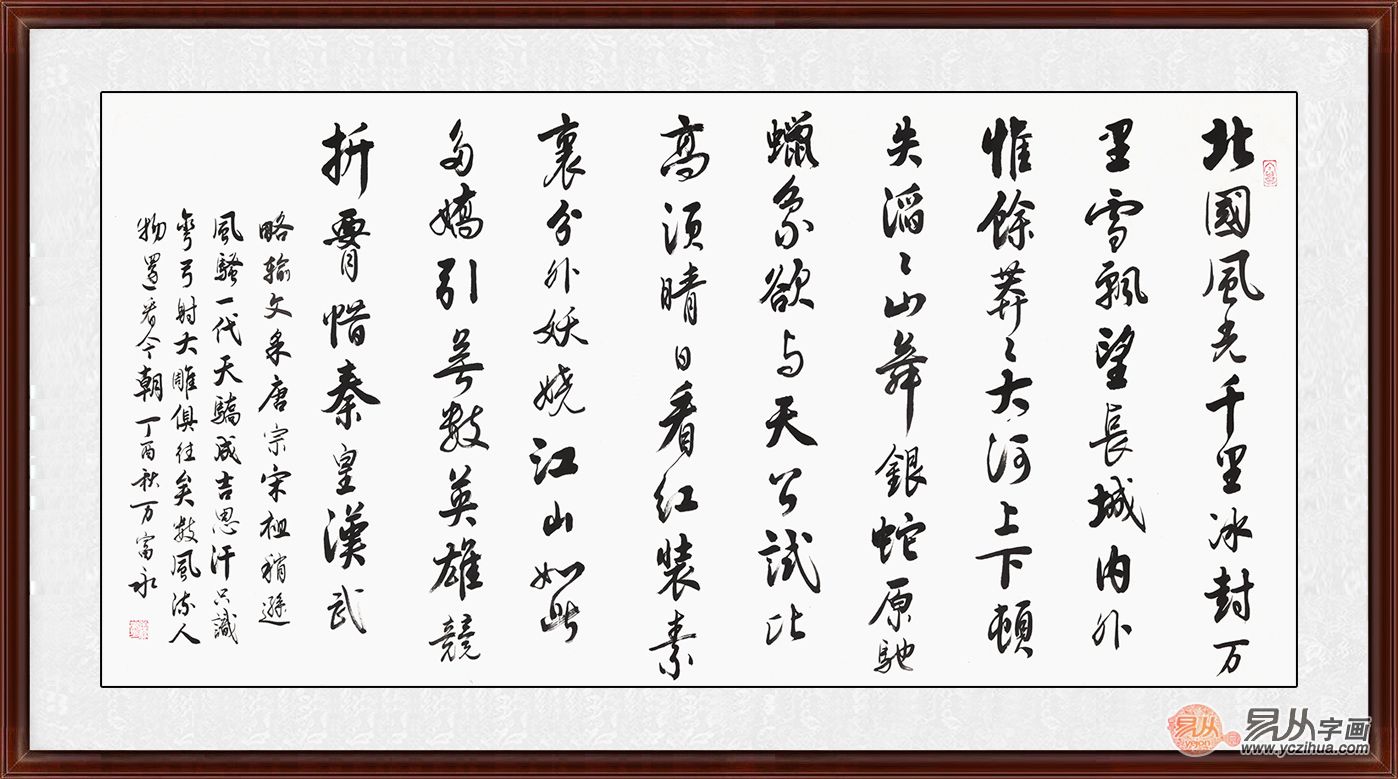 北國風光千里冰封万
里雪飄望長城内外
惟餘莽〻大河上下頓
失滔〻山舞銀蛇原馳
蠟象欲与天公試比
高須晴日看红裝素
裹分外妖娆江山如此
多嬌引無數英雄競
折腰惜秦皇漢武
略輸文采唐宗宋祖稍遜
風騷一代天驕成吉思汗只識
彎弓射大雕俱往矣數風流人
物還看今朝丁酉秋万富永
易从
易从字画
www.yczihua.com